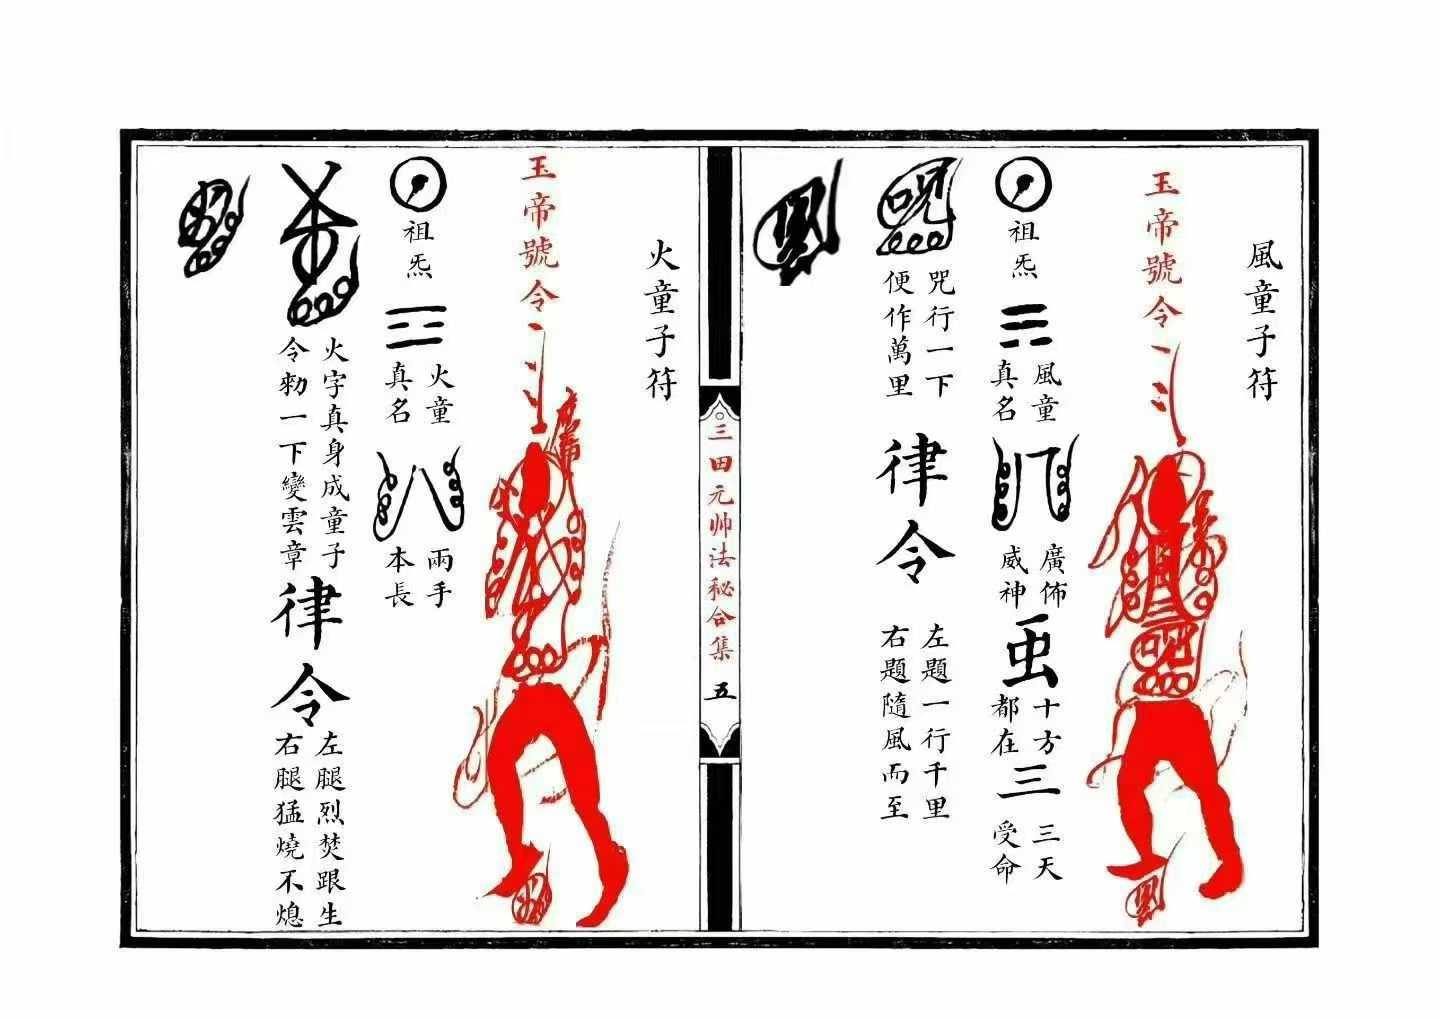 風童子符
玉帝號令
祖炁
風童
真名
廣佈
威神
十方
都在
三
三天
受命
咒行一下
便作萬里
律令
左題一行千里
右題隨風而至
三田元帅法秘合集
五
火童子符
玉帝號令
祖炁
火童
真名
兩手
本長
火字真身成童子
令勑一下變雲章
律令
左腿烈焚跟生
右腿猛燒不熄